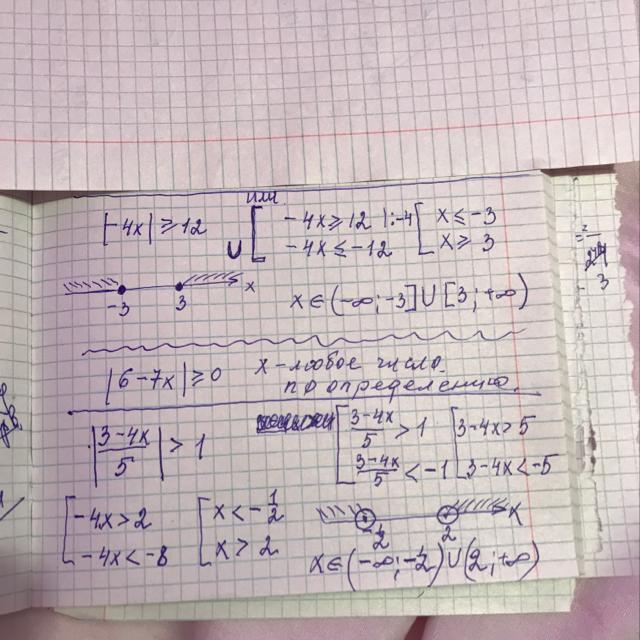 или
|-4x| ≥ 12 ∪ [ -4x ≥ 12 |:-4 [ x ≤ -3
-4x ≤ -12 x ≥ 3
-3 3 x
x ∈ (-∞; -3] ∪ [3; +∞)
|6-7x| ≥ 0 x - любое число
по определению.
|(3-4x)/5| > 1 [ (3-4x)/5 > 1 [ 3-4x > 5
(3-4x)/5 < -1 3-4x < -5
[ -4x > 2 [ x < -1/2
-4x < -8 x > 2
-1/2 2 x
x ∈ (-∞; -1/2) ∪ (2; +∞)